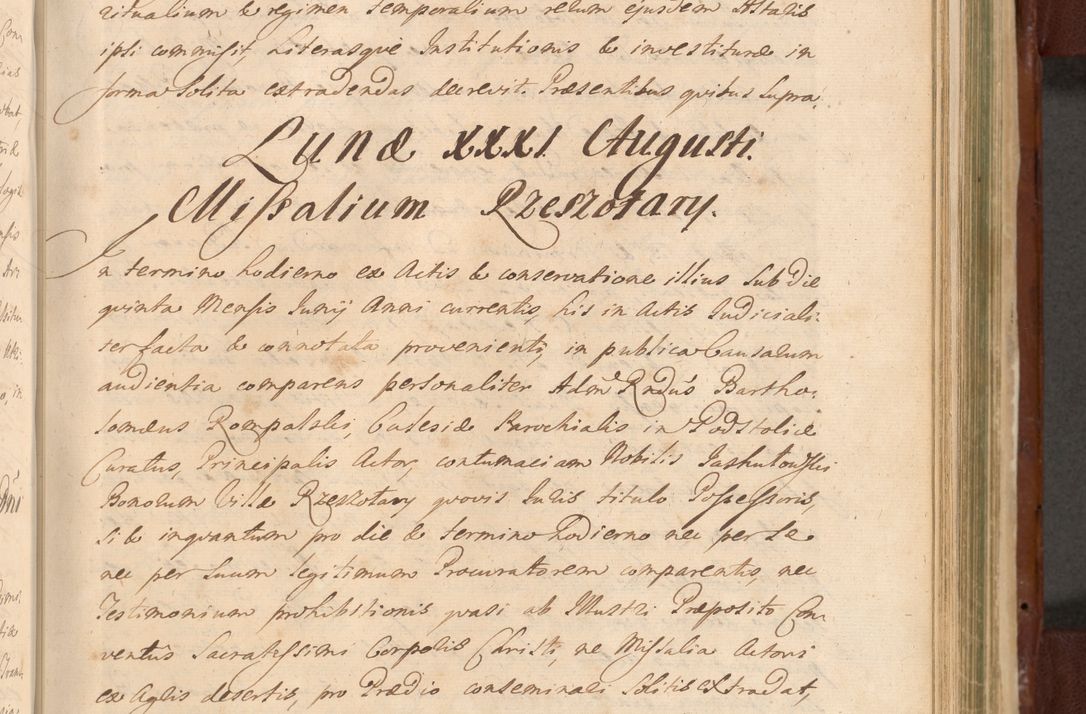 ritualium & regimen temporalium rerum ejusdem Altaris
ipsi commisit, Literasque Institutionis & investituræ in
forma solita extradendas decrevit. Præsentibus quibus Supra.
Lunæ XXXI. Augusti.
Missalium Rzeszotary.
In termino hodierno ex Actis & conservatione illius sub Die
quinta Mensis Junij Anni currentis, his in Actis Judiciali-
ter facta & connotata provenienti, in publica Causarum
audientia comparens personaliter Admd Rndus Bartho-
lomæus Rompalski, Ecclesiæ Parochialis in Podstolice
Curatus, Principalis Actor, contumaciam Nobilis Jaskutowski
Bonorum Villæ Rzeszotary quovis Juris titulo Possessoris,
si & inquantum pro die & termino hodierno nec per se
nec per suum legitimum Procuratorem comparentis, nec
Testimonium prohibitionis quasi ab Illustri Præposito Con-
ventus Sacratissimi Corporis Christi, ne Missalia Actori
ex Agris desertis, pro Prædio conseminari solitis extradat,